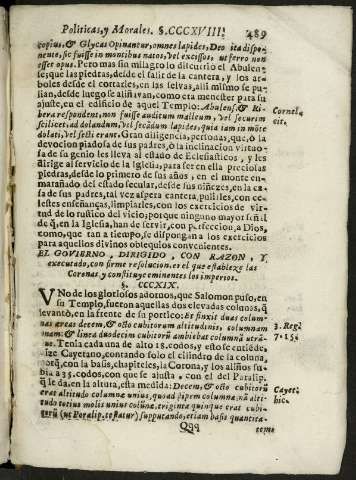 Politicas, y Morales. §. CCCXVIII.
489
copius, & Glycas Opinantur, omnes lapides, Deo ita dispo-
nente, sic fuisse in montibus natos, vel excissos, ut ferro non
esser opus. Pero mas sin milagro lo discurrio el Abulen-
se; que las piedras, desde el salir de la cantera, y los ar-
boles desde el cortarles, en las selvas, alli mismo se pu-
lian, desde luego se alisavan, como era menester para su
ajuste, en el edificio de aquel Templo: Abulens. & Ri-
bera respondent, non fuisse auditum malleum, vel securim
scilicet, ad dolandum, vel secãdum lapides, quia iam in mõte
dolati, vel secti erant. Gran diligencia, personas, que, ò la
devocion piadosa de sus padres, ò la inclinacion virtuo-
sa de su genio les lleva al estado de Eclesiasticos, y les
dirige al servicio de la Iglesia, para ser en ella preciosas
piedras, desde lo primero de sus años, en el monte en-
marañado del estado secular, desde sus niñezes, en la ca-
sa de sus padres, tal vez aspera cantera, pulirles, con ce-
lestes enseñanças, limpiarles, con los exercicios de vir-
tud de lo rustico del vicio; porque ninguno mayor señal
de q̃, en la Iglesia, han de servir, con perfeccion, a Dios,
como, que tan a tiempo, se dispongan a los exercicios
para aquellos divinos obsequios convenientes.
EL GOVIERNO, DIRIGIDO, CON RAZON, Y
executado, con firme resolucion, es el que establece las
Coronas, y constituye eminentes los imperios.
§. CCCXIX.
VNo de los gloriosos adornos, que Salomon puso, en
su Templo, fueron aquellas dos elevadas colunas, q̃
levantò, en la frente de su portico: Et finxit duas colum-
nas æreas decem, & octo cubitorum altitudinis, columnam
unam: & linea duodecim cubitorum ambiebat columnã utrã-
que. Tenia cada una de alto 18. codos, y esto se entiẽde,
dize Cayetano, contando solo el cilindro de la coluna,
porq̃, con la basis, chapiteles, la Corona, y los alisios su-
bia a 35. codos, con que se ajusta, con el del Paralip.
q̃ le da, en la altura, esta medida: Decem, & octo cubitorũ
erat altitudo columnæ unius, quoad pipem columnæ nã alti-
tudo totius molis unius colunæ, triginta quinque erat cubi-
torũ (ut Paralip. testatur) supputando, etiam basis quantita-
Qqq
tems
Cornel.
cit.
3. Reg.
7. 15.
Cayet.
hic.